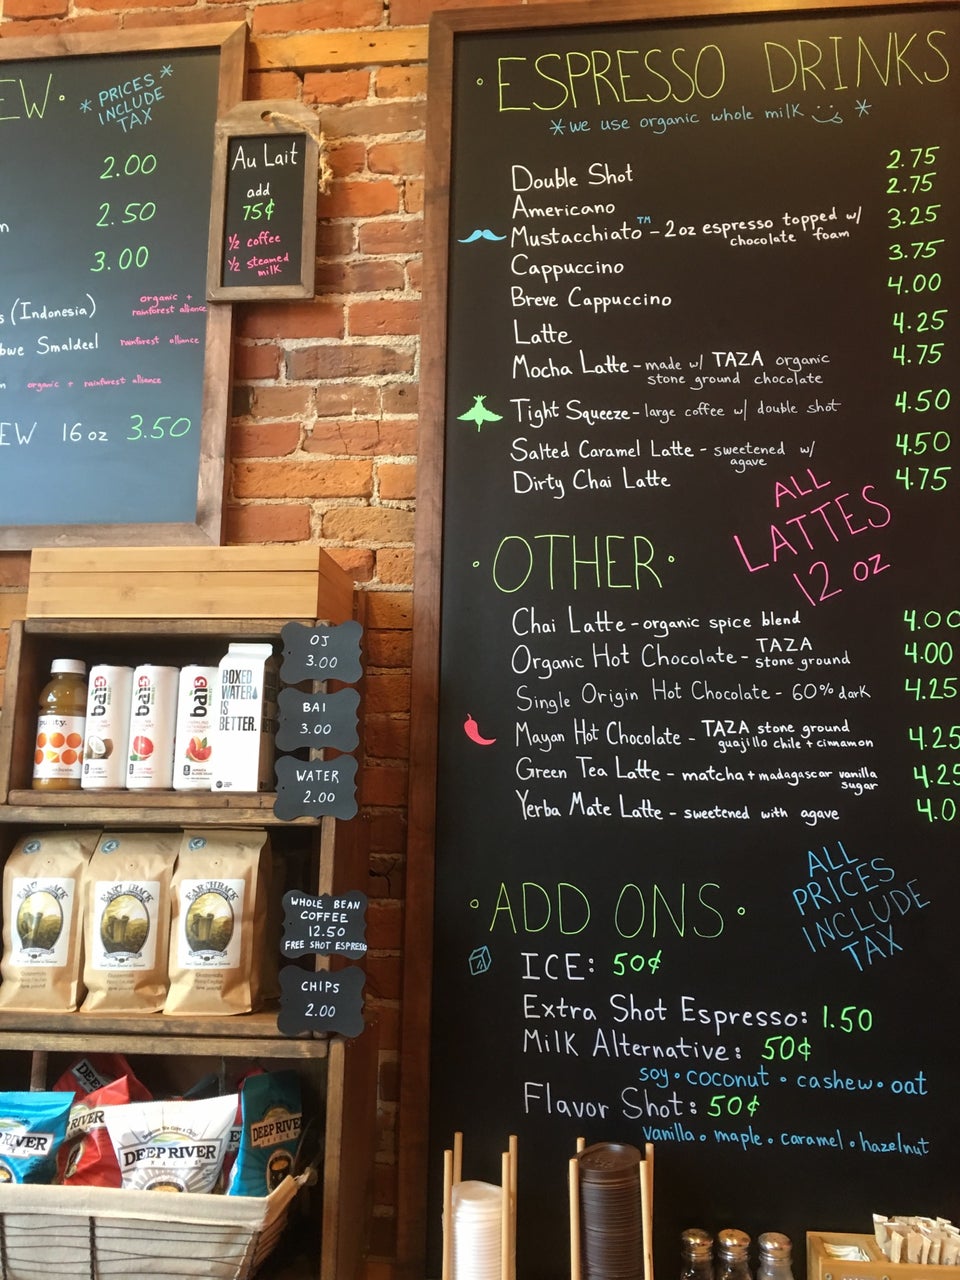 EW.
* PRICES *
INCLUDE
TAX
2.00
2.50
3.00
(Indonesia) organic +
rainforest alliance
Smaldeel rainforest alliance
organic + rainforest alliance
EW 16oz 3.50
Au Lait
add
75¢
½ coffee
½ steamed
milk
OJ
3.00
BAI
3.00
WATER
2.00
bai
bai
bai5
BOXED
WATER
IS
BETTER.
WHOLE BEAN
COFFEE
12.50
FREE SHOT ESPRESSO
CHIPS
2.00
DEEP RIVER
RIVER
DEEP RIVER
SNACKS
DEEP RIVER
· ESPRESSO DRINKS
*we use organic whole milk *
Double Shot 2.75
Americano 2.75
Mustacchiato™ - 2oz espresso topped w/ 3.25
chocolate foam
Cappuccino 3.75
Breve Cappuccino 4.00
Latte 4.25
Mocha Latte - made w/ TAZA organic 4.75
stone ground chocolate
Tight Squeeze - large coffee w/ double shot 4.50
Salted Caramel Latte - sweetened w/ 4.50
agave
Dirty Chai Latte 4.75
ALL
LATTES
12 oz
· OTHER ·
Chai Latte - organic spice blend 4.00
Organic Hot Chocolate - TAZA 4.00
stone ground
Single Origin Hot Chocolate - 60% dark 4.25
Mayan Hot Chocolate - TAZA stone ground 4.25
guajillo chile + cinnamon
Green Tea Latte - matcha + madagascar vanilla 4.25
sugar
Yerba Mate Latte - sweetened with agave 4.0
ALL
PRICES
INCLUDE
TAX
· ADD ONS ·
ICE: 50¢
Extra Shot Espresso: 1.50
Milk Alternative: 50¢
soy · coconut · cashew · oat
Flavor Shot: 50¢
vanilla · maple · caramel · hazelnut